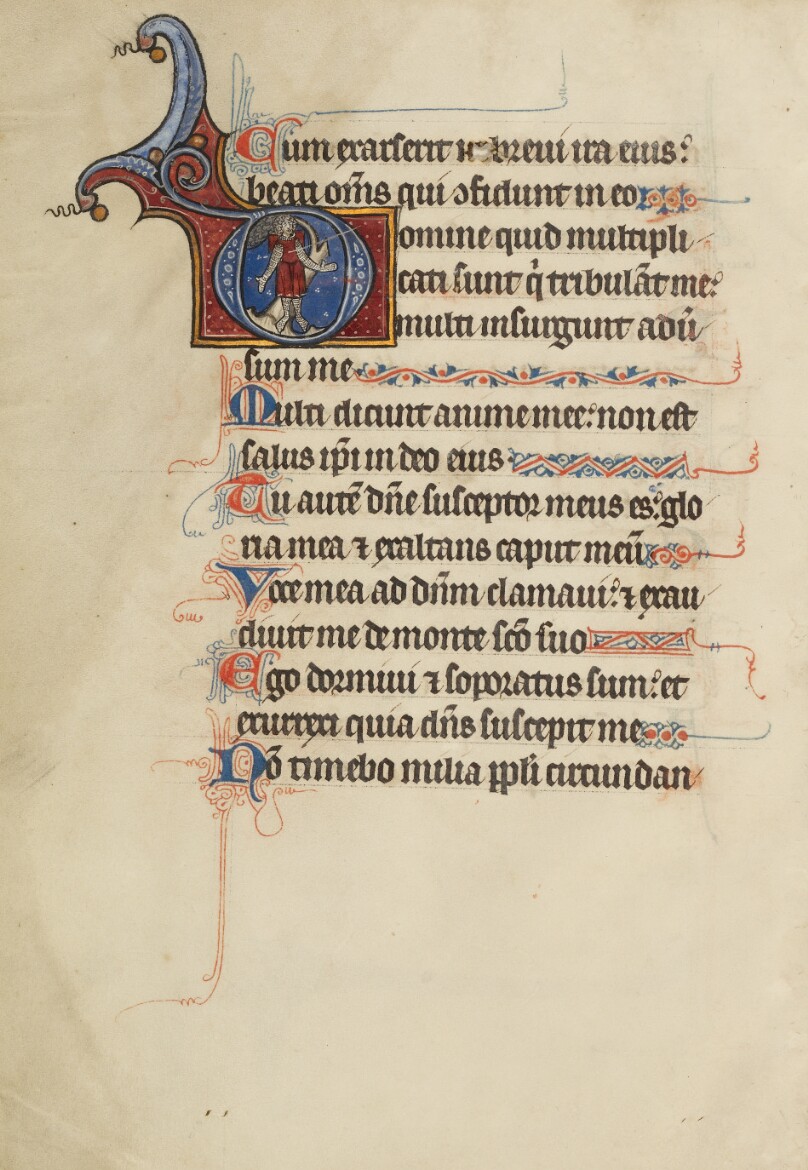 Cum exarserit in brevi ira eius:
beati om̃s qui ɔfidunt in eo
Domine quid multipli
cati sunt q̇ tribulãt me:
multi insurgunt adũ
sum me
Multi dicunt anime mee: non est
salus ip̃i in deo eius
Tu autẽ dñe susceptor meus es: glo
ria mea ⁊ exaltans caput meũ
Voce mea ad dñm clamaui: ⁊ exau
diuit me de monte scõ suo
Ego dormiui ⁊ soporatus sum: et
exurrexi quia dñs suscepit me
Nõ timebo milia ppl̃i circundan